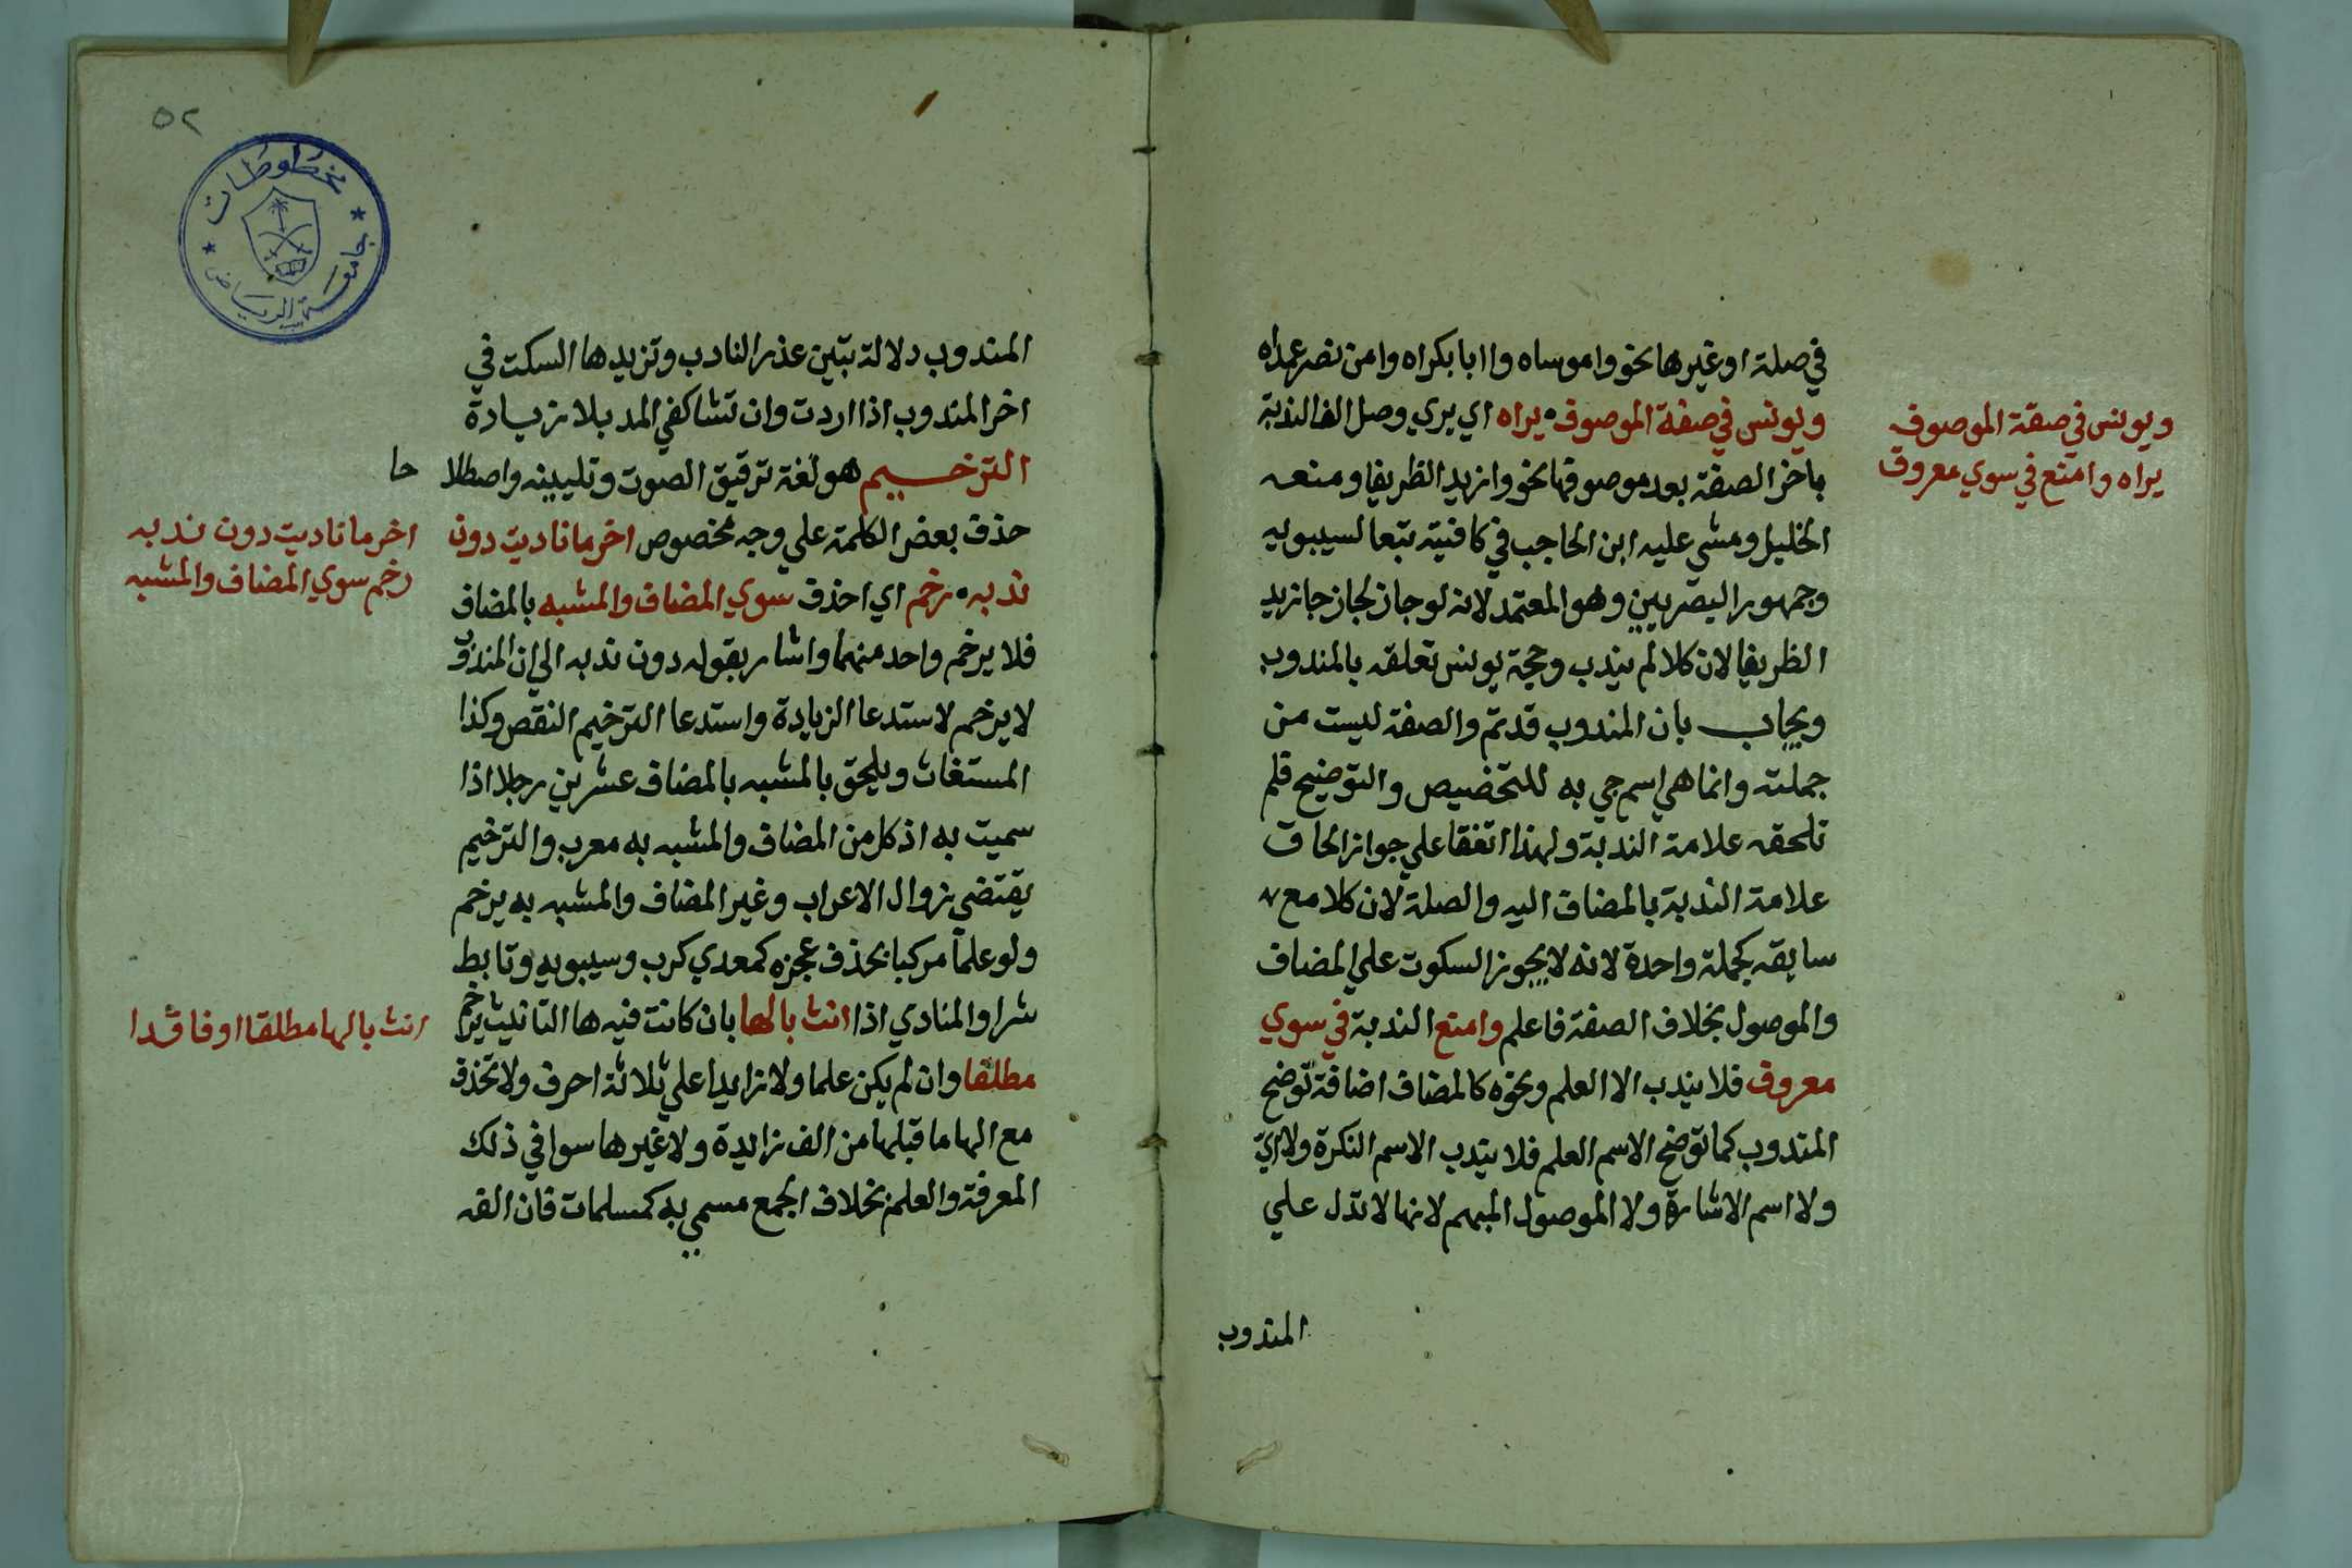 في صلة او غيرها نحو واموساه واابابكراه وامن نصر عمداه
ويونس في صفة الموصوف ه يراه اي يري وصل الف الندبة
باخر الصفة بعد موصوفها نحو وازيد الظريفا ومنعه
الخليل ومشي عليه ابن الحاجب في كافيته تبعا لسيبويه
وجمهور البصريين وهو المعتمد لانه لو جاز لجاز جا زيد
الظريفا لان كلا لم يندب وحجة يونس تعلقه بالمندوب
ويجاب بان المندوب قد تم والصفة ليست من
جملته وانما هي اسم جي به للتخصيص والتوضيح فلم
تلحقه علامة الندبة ولهذا اتفقا علي جواز الحاق
علامة الندبة بالمضاف اليه والصلة لان كلا مع
سابقه كجملة واحدة لانه لا يجوز السكوت علي المضاف
والموصول بخلاف الصفة فاعلم وامنع الندبة في سوي
معروف فلا يندب الا العلم ونحوه كالمضاف اضافة توضح
المندوب كما توضح الاسم العلم فلا يندب الاسم النكرة ولا اي
ولا اسم الاشارة ولا الموصول المبهم لانها لا تدل علي
المندوب
ويونس في صفة الموصوف
يراه وامنع في سوي معروف
٥٢
مخطوطات
جامعة الرياض
المندوب دلالة تبين عذر النادب وتزيد ها السكت في
اخر المندوب اذا اردت وان تشا كفي المد بلا زيادة
الترخيم هو لغة ترقيق الصوت وتليينه واصطلا حا
حذف بعض الكلمة علي وجه مخصوص اخر ما ناديت دون
ندبه ه رخم اي احذف سوي المضاف والمشبه بالمضاف
فلا يرخم واحد منهما واشار بقوله دون ندبه الي ان المندوب
لا يرخم لاستدعا الزيادة واستدعا الترخيم النقص وكذا
المستغاث ويلحق بالمشبه بالمضاف عشرين رجلا اذا
سميت به اذ كل من المضاف والمشبه به معرب والترخيم
يقتضي زوال الاعراب وغير المضاف والمشبه به يرخم
ولو علما مركبا بحذف عجزه كمعدي كرب وسيبويه وتابط
شرا والمنادي اذا انث بالها بان كانت فيه ها التانيث يرخم
مطلقا وان لم يكن علما ولا زايدا علي ثلاثة احرف ولا تحذف
مع الها ما قبلها من الف زايدة ولا غيرها سوا في ذلك
المعرفة والعلم بخلاف الجمع مسمي به كمسلمات فان الفه
اخر ما ناديت دون ندبه
رخم سوي المضاف والمشبه
انث بالها مطلقا او فاقدا